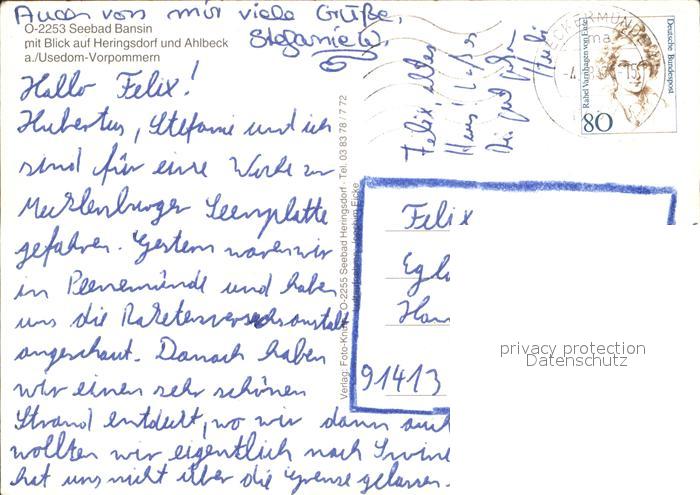 Auch von mir viele Grüße,
Stefanie W.
O-2253 Seebad Bansin
mit Blick auf Heringsdorf und Ahlbeck
a./Usedom-Vorpommern
Hallo Felix!
Hubertus, Stefanie und ich
sind für eine Woche zur
Mecklenburger Seenplatte
gefahren. Gestern waren wir
in Peenemünde und haben
uns die Raketenversuchsanstalt
angeschaut. Danach haben
wir einen sehr schönen
Strand entdeckt, wo wir dann auch
wollten wir eigentlich nach Swine
hat uns nicht über die Grenze gelassen.
Verlag: Foto-Knapp O-2255 Seebad Heringsdorf · Tel. 03 83 78 / 7 72
Felix, altes
Haus! Lass
Dir gut gehn
Hubi
UECKERMÜNDE
Rahel Varnhagen von Ense
Deutsche Bundespost
80
Felix
Egl
Han
91413
privacy protection
Datenschutz